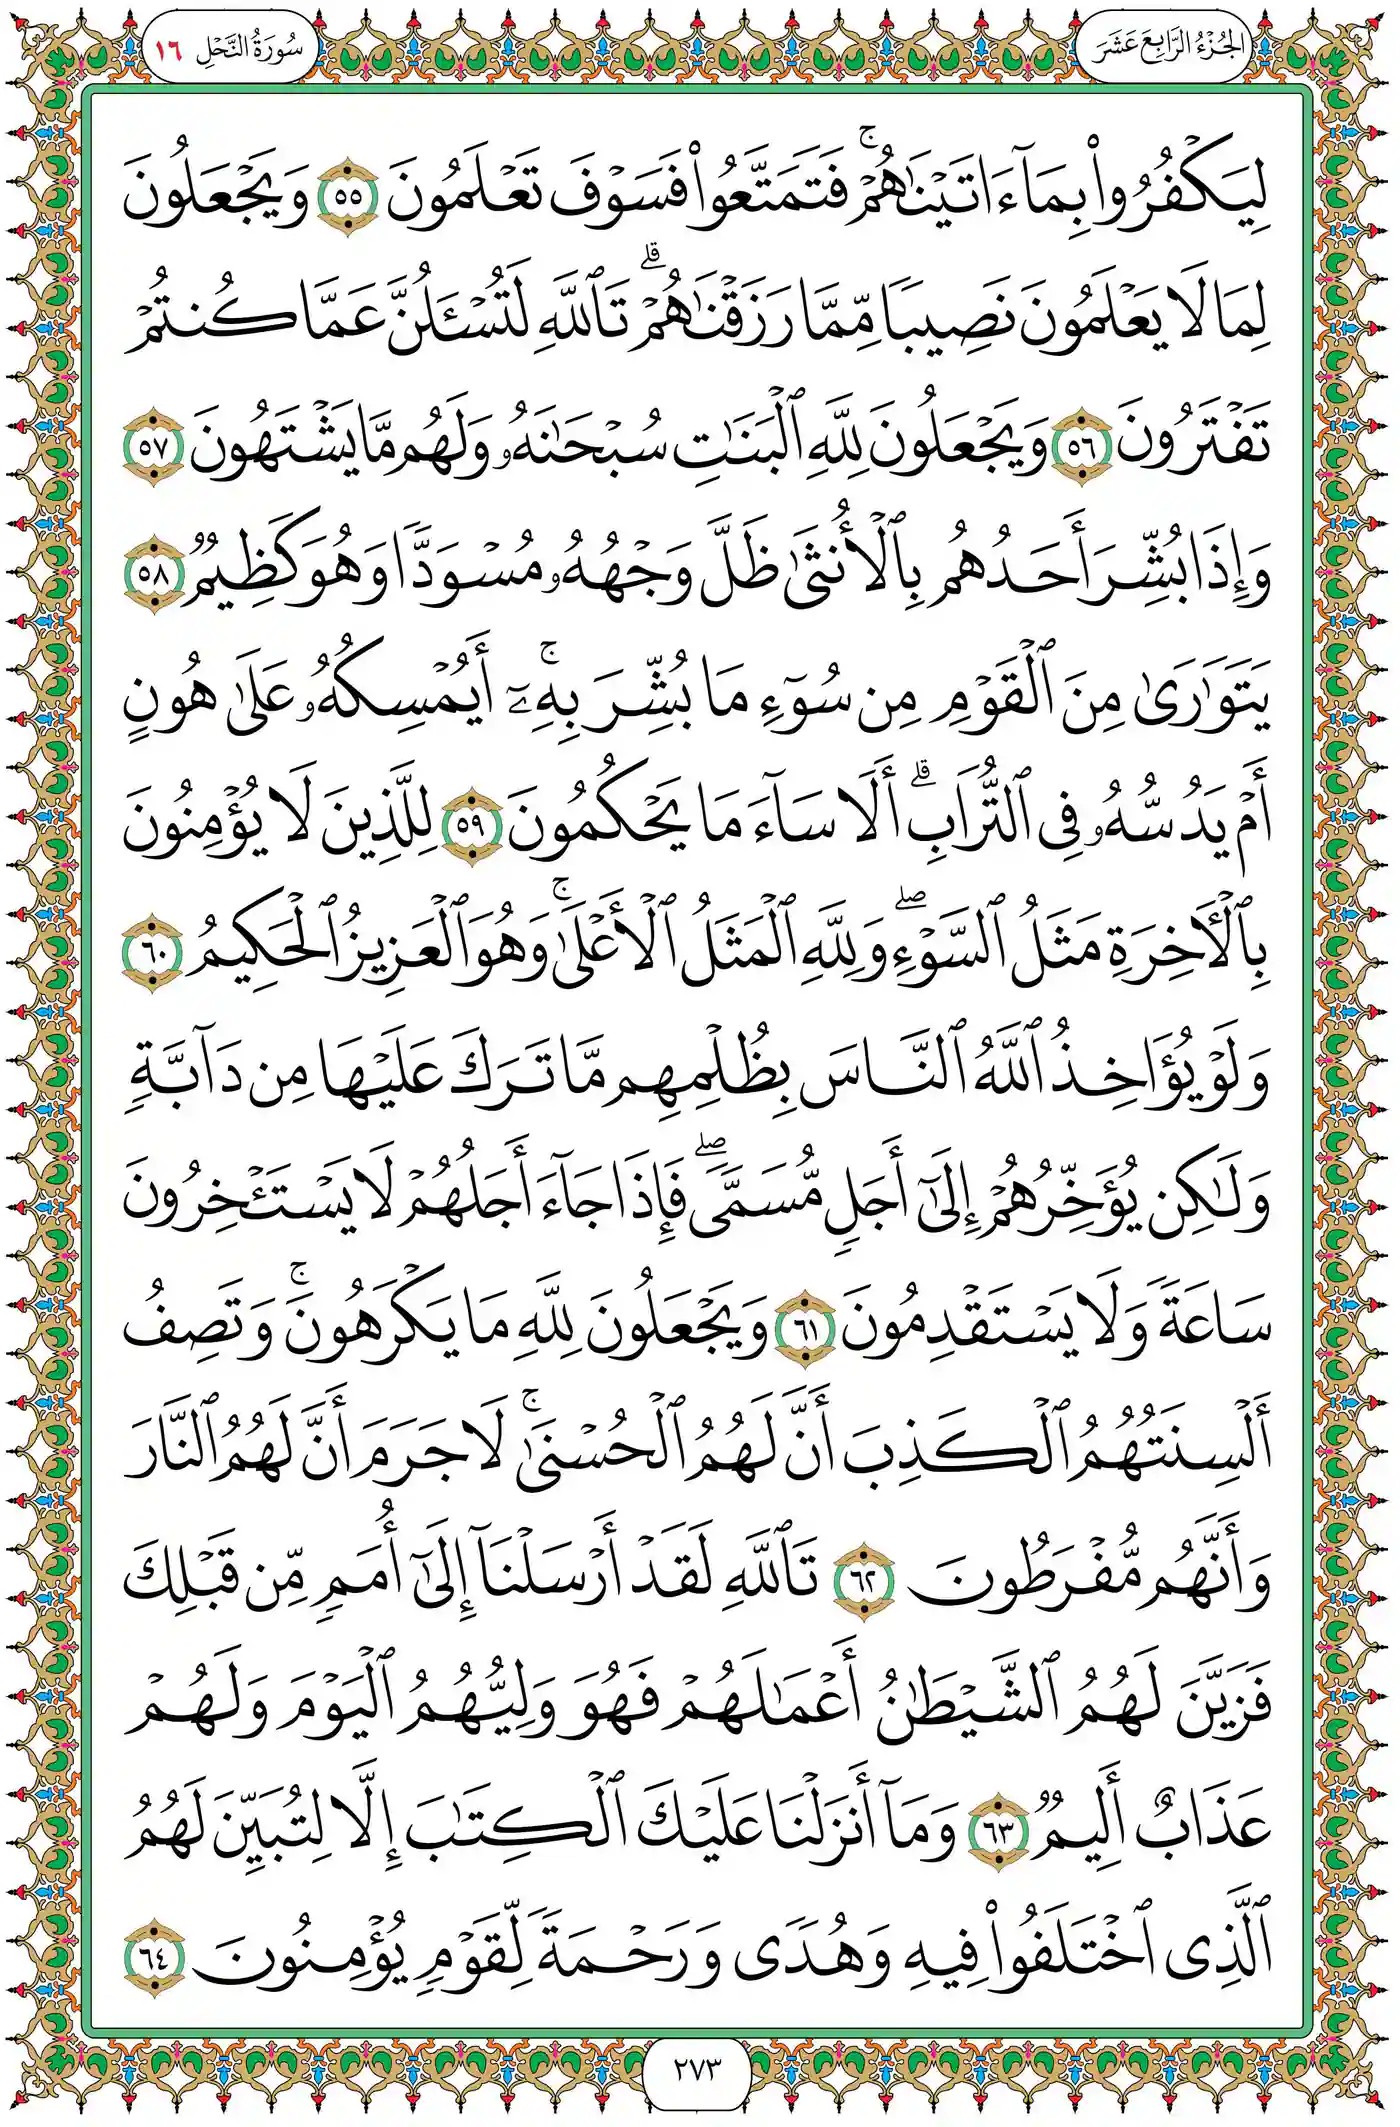 الجُزْءُ الرَّابِعَ عَشَرَ
سُورَةُ النَّحْلِ ١٦
لِيَكْفُرُوا۟ بِمَآ ءَاتَيْنَـٰهُمْ ۚ فَتَمَتَّعُوا۟ فَسَوْفَ تَعْلَمُونَ ٥٥ وَيَجْعَلُونَ
لِمَا لَا يَعْلَمُونَ نَصِيبًا مِّمَّا رَزَقْنَـٰهُمْ ۗ تَٱللَّهِ لَتُسْـَٔلُنَّ عَمَّا كُنتُمْ
تَفْتَرُونَ ٥٦ وَيَجْعَلُونَ لِلَّهِ ٱلْبَنَـٰتِ سُبْحَـٰنَهُۥ وَلَهُم مَّا يَشْتَهُونَ ٥٧
وَإِذَا بُشِّرَ أَحَدُهُم بِٱلْأُنثَىٰ ظَلَّ وَجْهُهُۥ مُسْوَدًّا وَهُوَ كَظِيمٌ ٥٨
يَتَوَٰرَىٰ مِنَ ٱلْقَوْمِ مِن سُوٓءِ مَا بُشِّرَ بِهِۦٓ ۚ أَيُمْسِكُهُۥ عَلَىٰ هُونٍ
أَمْ يَدُسُّهُۥ فِى ٱلتُّرَابِ ۗ أَلَا سَآءَ مَا يَحْكُمُونَ ٥٩ لِلَّذِينَ لَا يُؤْمِنُونَ
بِٱلْـَٔاخِرَةِ مَثَلُ ٱلسَّوْءِ ۖ وَلِلَّهِ ٱلْمَثَلُ ٱلْأَعْلَىٰ ۚ وَهُوَ ٱلْعَزِيزُ ٱلْحَكِيمُ ٦٠
وَلَوْ يُؤَاخِذُ ٱللَّهُ ٱلنَّاسَ بِظُلْمِهِم مَّا تَرَكَ عَلَيْهَا مِن دَآبَّةٍ
وَلَـٰكِن يُؤَخِّرُهُمْ إِلَىٰٓ أَجَلٍ مُّسَمًّى ۖ فَإِذَا جَآءَ أَجَلُهُمْ لَا يَسْتَـْٔخِرُونَ
سَاعَةً وَلَا يَسْتَقْدِمُونَ ٦١ وَيَجْعَلُونَ لِلَّهِ مَا يَكْرَهُونَ ۚ وَتَصِفُ
أَلْسِنَتُهُمُ ٱلْكَذِبَ أَنَّ لَهُمُ ٱلْحُسْنَىٰ ۚ لَا جَرَمَ أَنَّ لَهُمُ ٱلنَّارَ
وَأَنَّهُم مُّفْرَطُونَ ٦٢ تَٱللَّهِ لَقَدْ أَرْسَلْنَآ إِلَىٰٓ أُمَمٍ مِّن قَبْلِكَ
فَزَيَّنَ لَهُمُ ٱلشَّيْطَـٰنُ أَعْمَـٰلَهُمْ فَهُوَ وَلِيُّهُمُ ٱلْيَوْمَ وَلَهُمْ
عَذَابٌ أَلِيمٌ ٦٣ وَمَآ أَنزَلْنَا عَلَيْكَ ٱلْكِتَـٰبَ إِلَّا لِتُبَيِّنَ لَهُمُ
ٱلَّذِى ٱخْتَلَفُوا۟ فِيهِ وَهُدًى وَرَحْمَةً لِّقَوْمٍ يُؤْمِنُونَ ٦٤
٢٧٣